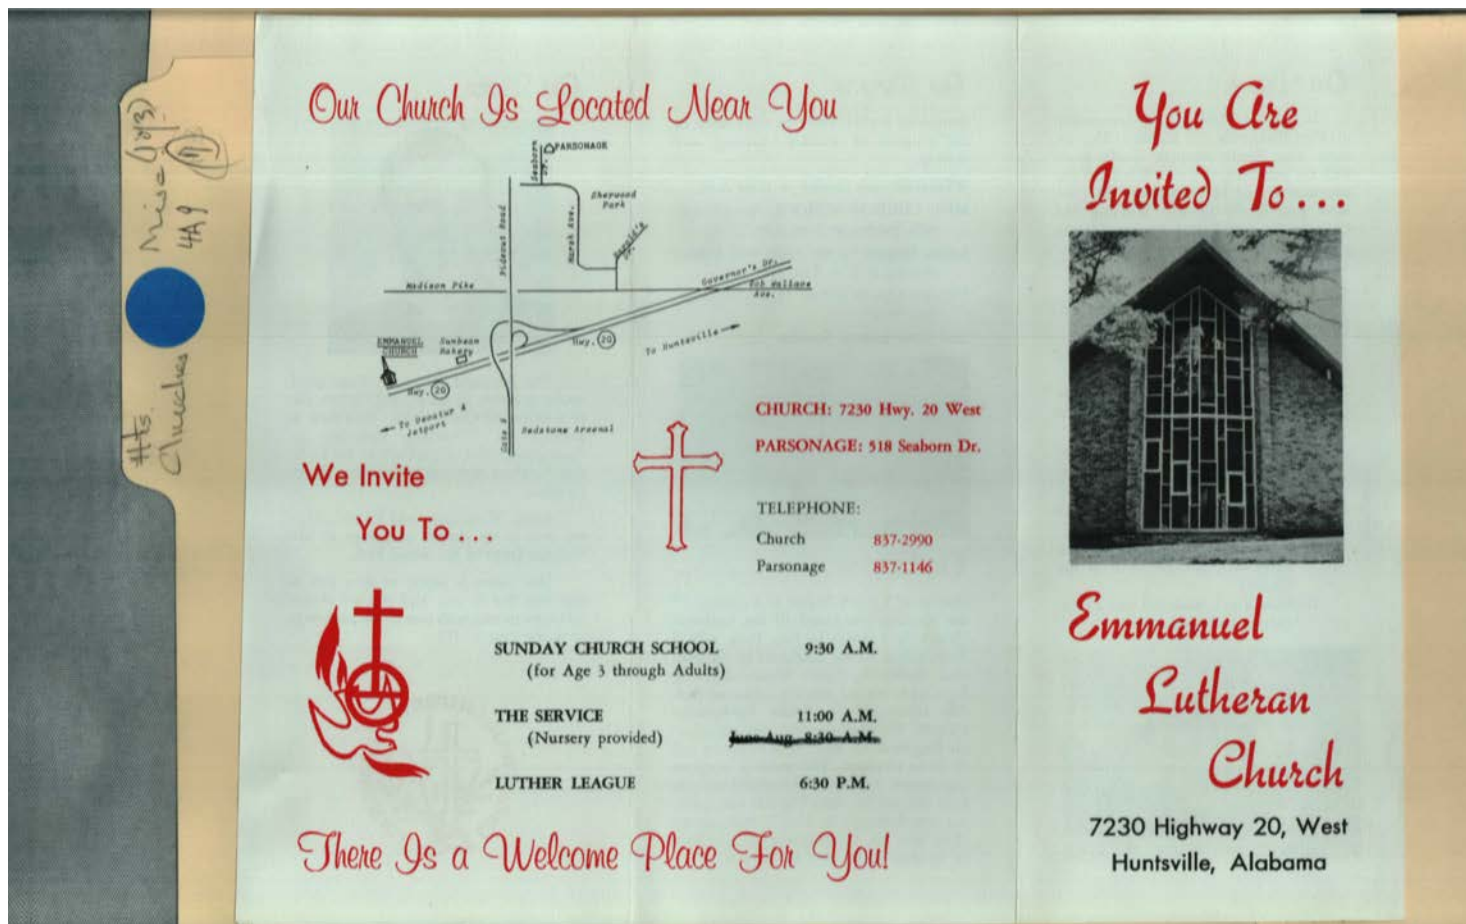 Misc (1 of 3)
4A9
Hts.
Churches
Our Church Is Located Near You
Seaborn Dr.
PARSONAGE
Sherwood
Park
Rideout Road
Marsh Ave.
Madison Pike
Governor's Dr.
Bob Wallace
Ave.
EMMANUEL
CHURCH
Sunbeam
Bakery
Hwy. 20
To Huntsville
Hwy. 20
To Decatur &
Jetport
Gate 9
Redstone Arsenal
CHURCH: 7230 Hwy. 20 West
PARSONAGE: 518 Seaborn Dr.
TELEPHONE:
Church 837-2990
Parsonage 837-1146
We Invite
You To ...
SUNDAY CHURCH SCHOOL 9:30 A.M.
(for Age 3 through Adults)
THE SERVICE 11:00 A.M.
(Nursery provided) June-Aug. 8:30 A.M.
LUTHER LEAGUE 6:30 P.M.
There Is a Welcome Place For You!
You Are
Invited To ...
Emmanuel
Lutheran
Church
7230 Highway 20, West
Huntsville, Alabama